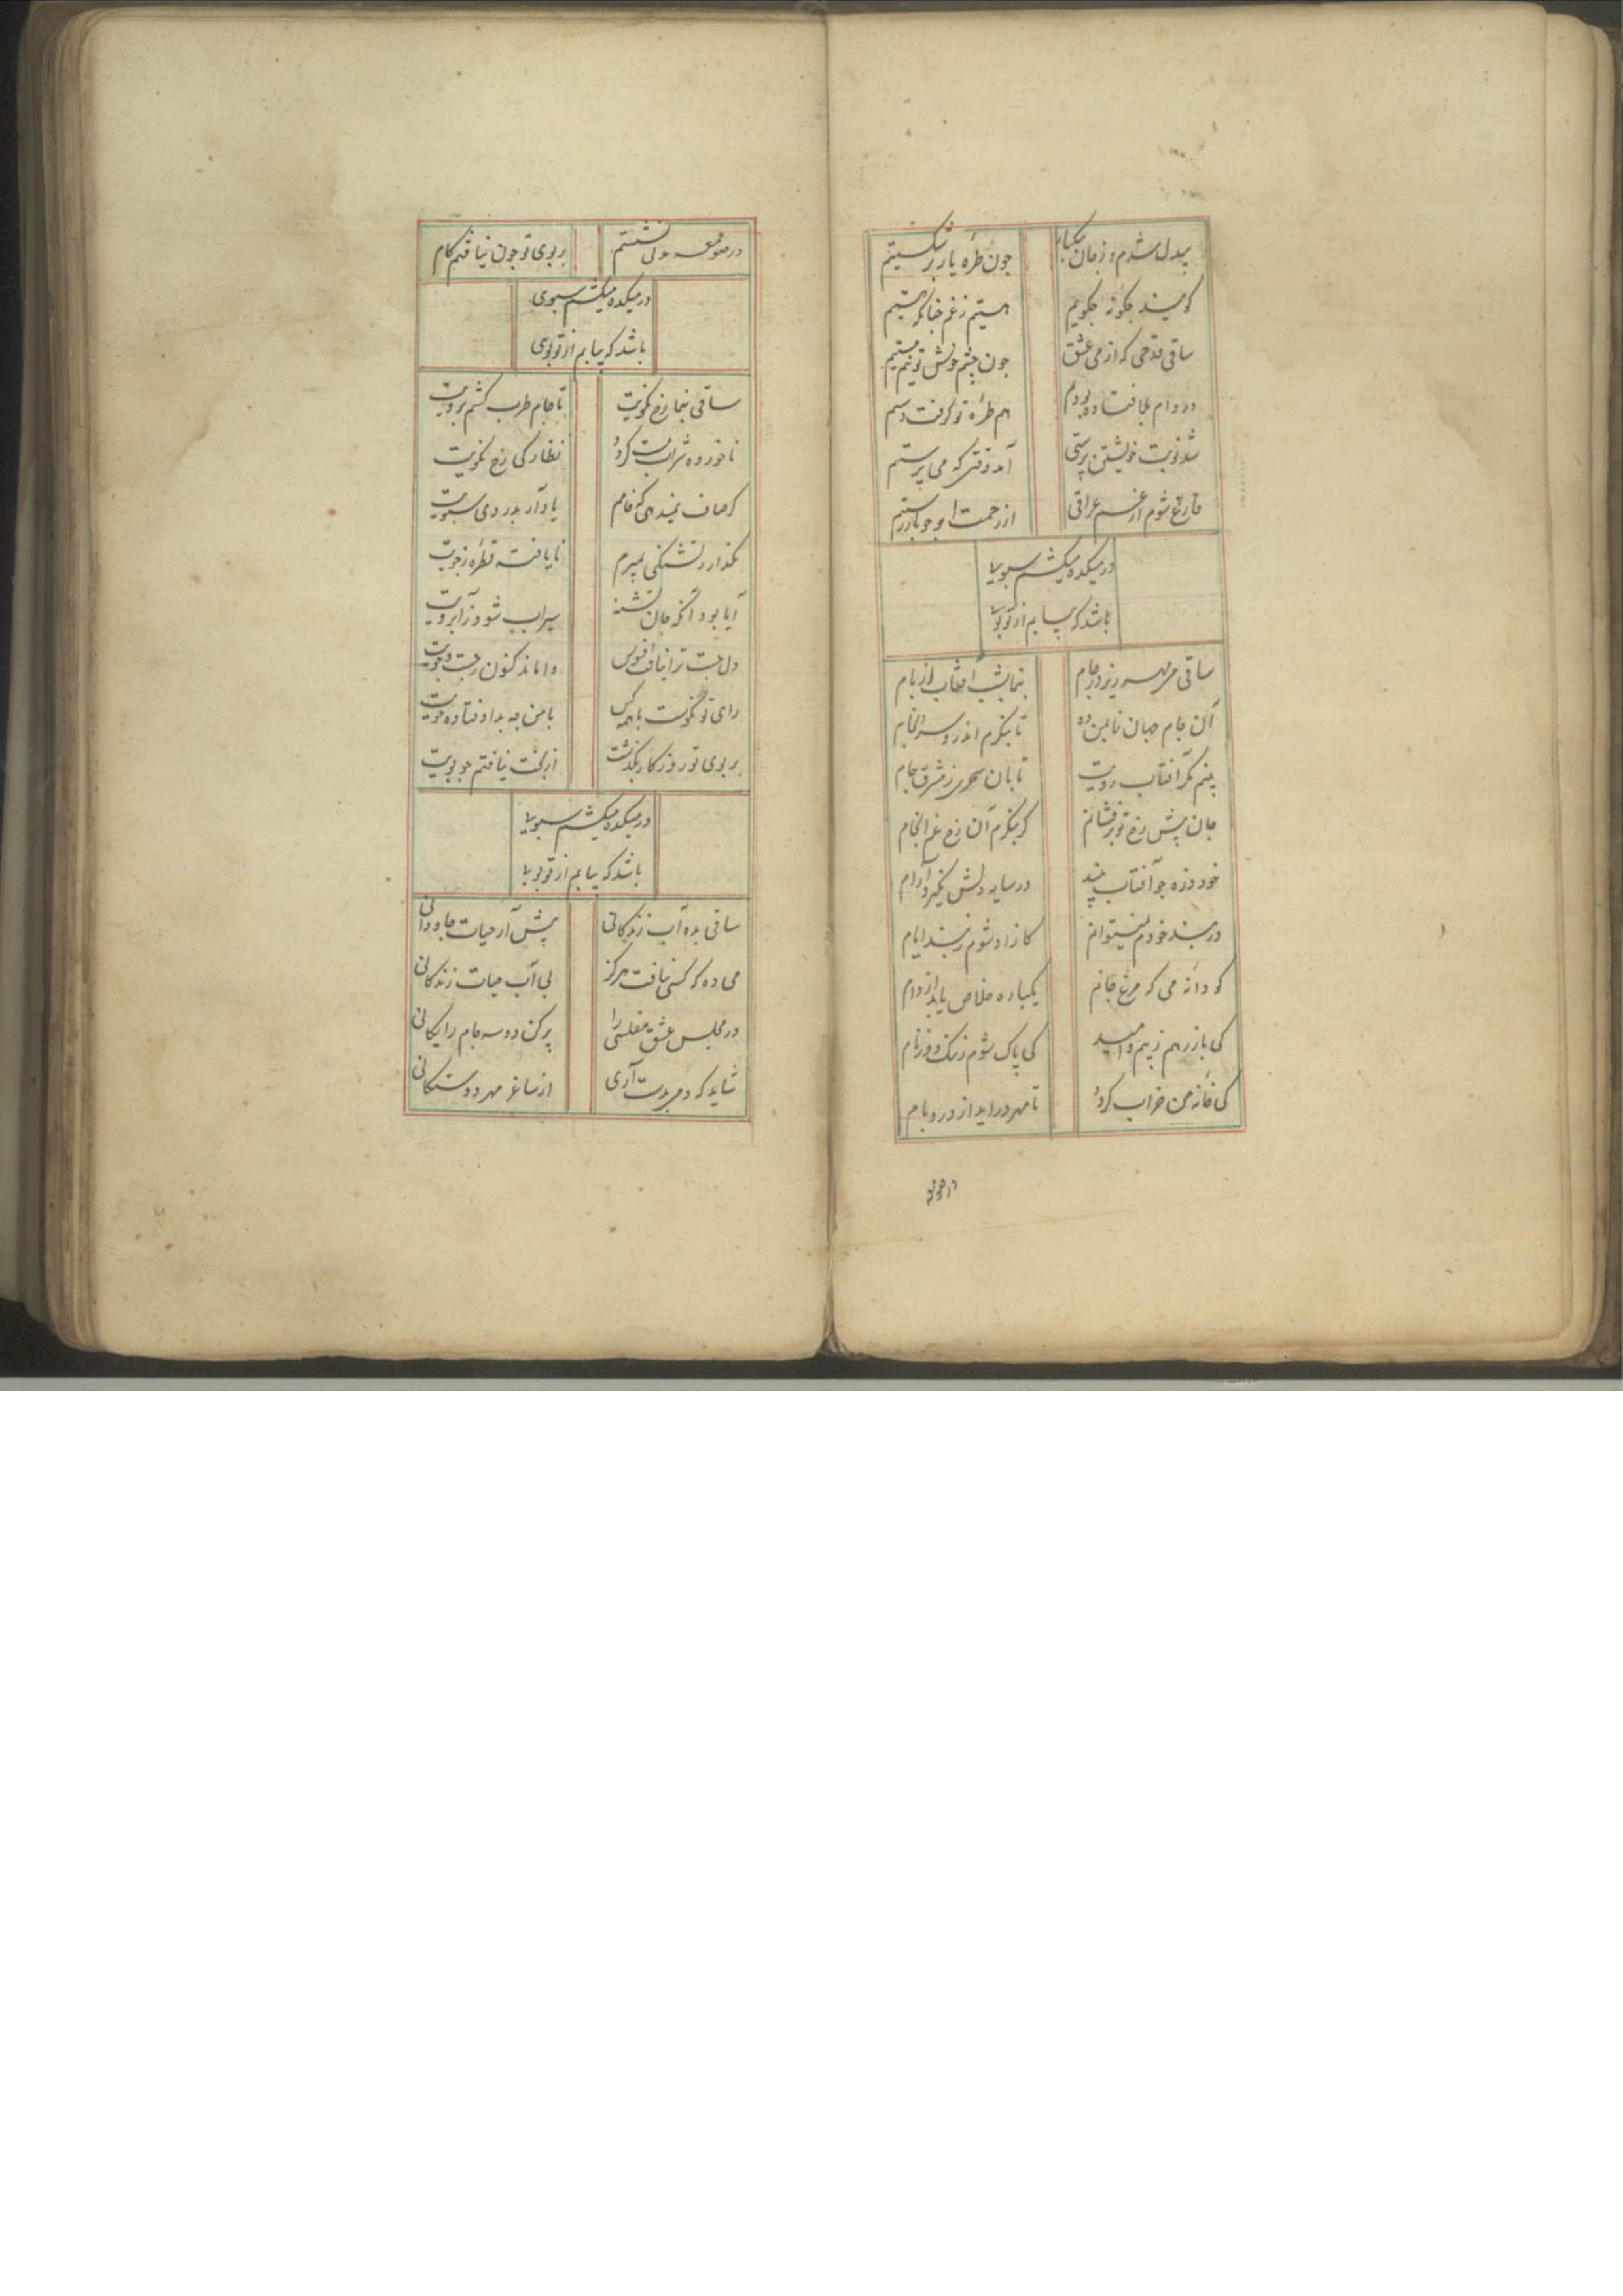 بیدل شدم و زجان بیکبار جون طرّه یار بر شکستیم
کویند جکونه جکویم هستیم زغم جنانکه هستیم
ساقی قدحی که از می عشق جون چشم خوش تو نیم مستیم
در دام بلا فتاده بودم هم طرّه تو کرفت دستم
شد نوبت خویشتن پرستی آمد وقتی که می پرستم
فارغ شوم از غم عراقی از زحمت او جو باز رستم
در میکده میکشم سبویی
باشد که بیابم از تو بویی
ساقی می مهر ریز در جام بنمای شب آفتاب از بام
آن جام جهان نما بمن ده تا بنکرم اندر و سرانجام
بینم مکر آفتاب رویت تابان سحری ز مشرق جام
جان پیش رخ تو بر فشانم کر بنکرم آن رخ غم انجام
خود ذره جو آفتاب بیند در سایه دلش نکیرد آرام
در بند خودم نمیتوانم کازاد شوم ز بند ایام
کو دانه می که مرغ جانم یکباره خلاص یابد از دام
کی باز رهم ز بیم و امید کی پاک شوم ز ننک و از نام
کی خانه من خراب کردد تا مهر در اید از در و بام
در صومعه
در صومعه مدتی نشستم بر بوی تو جون نیافتم کام
در میکده میکشم سبوی
باشد که بیابم از تو بوی
ساقی بنما رخ نکویت تا جام طرب کشم برویت
ناخورده شراب مست کردد نظارکی رخ نکویت
کر صاف نمیدهی که خامم یاد آر بدردی سبویت
مکذار ز تشنکی بمیرم نایافته قطره ز جویت
آیا بود آنکه جان تشنه سیراب شود ز آب رویت
دل جست ترا نیافت افسوس واماند کنون ز جست و جویت
رای تو نکوست با همه کس با من چه بد اوفتاده خویت
بر بوی تو روزکار بکذشت از بخت نیافتم جو بویت
در میکده میکشم سبویی
باشد که بیابم از تو بویی
ساقی بده آب زندکانی پیش آر حیات جاودانی
می ده که کسی نیافت هرکز بی آب حیات زندکانی
در مجلس عشق مفلسی را پر کن دو سه جام رایکانی
شاید که دمی بدست آری از ساغر مهر دوستکانی